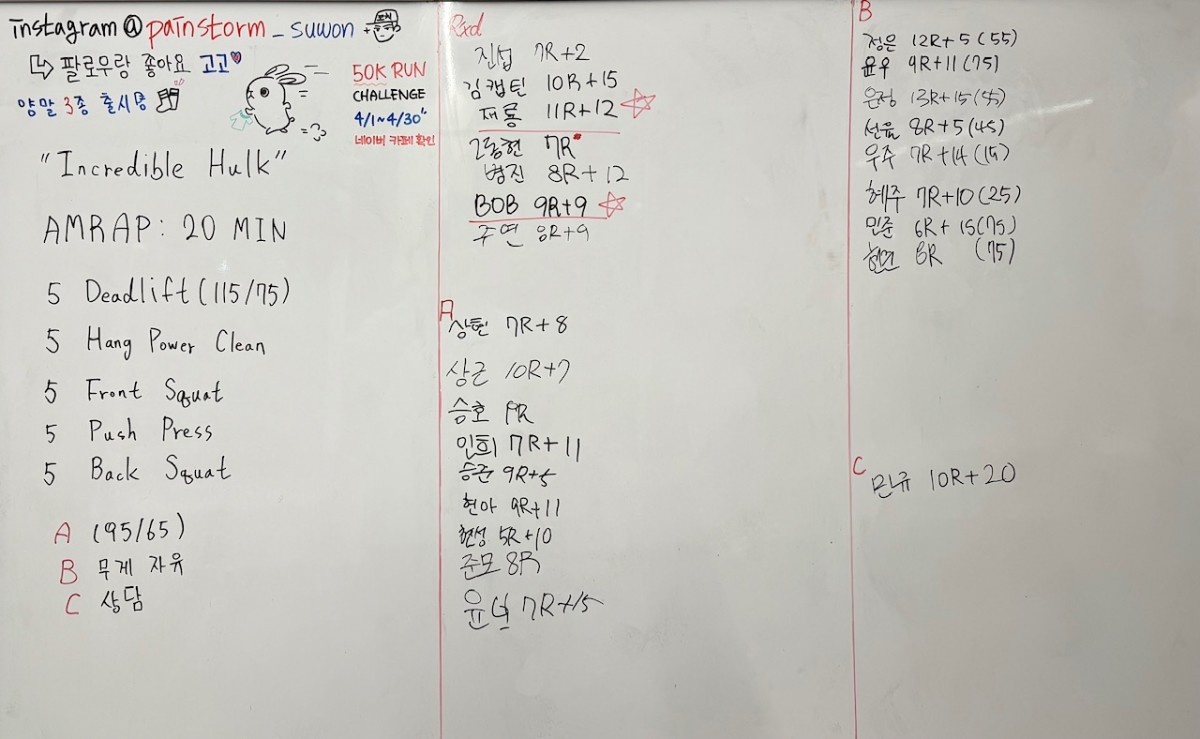 instagram @painstorm_suwon
↳ 팔로우랑 좋아요 고고♥
양말 3종 출시중
50K RUN
CHALLENGE
4/1~4/30"
네이버 카페 확인
"Incredible Hulk"
AMRAP: 20 MIN
5 Deadlift (115/75)
5 Hang Power Clean
5 Front Squat
5 Push Press
5 Back Squat
A (95/65)
B 무게 자유
C 상담
Rxd
진섭 7R+2
김캡틴 10R+15
재룡 11R+12 ☆
2동현 7R
병진 8R+12
BOB 9R+9 ☆
주연 8R+9
A
상현 7R+8
상근 10R+7
승호 9R
민희 7R+11
승준 9R+5
현아 9R+11
현성 5R+10
준모 8R
7R+15
B
정은 12R+5 (55)
윤우 9R+11 (75)
은정 13R+15 (55)
8R+5 (45)
우주 7R+14 (15)
혜주 7R+10 (25)
민준 6R+15 (75)
8R (75)
C
민규 10R+20